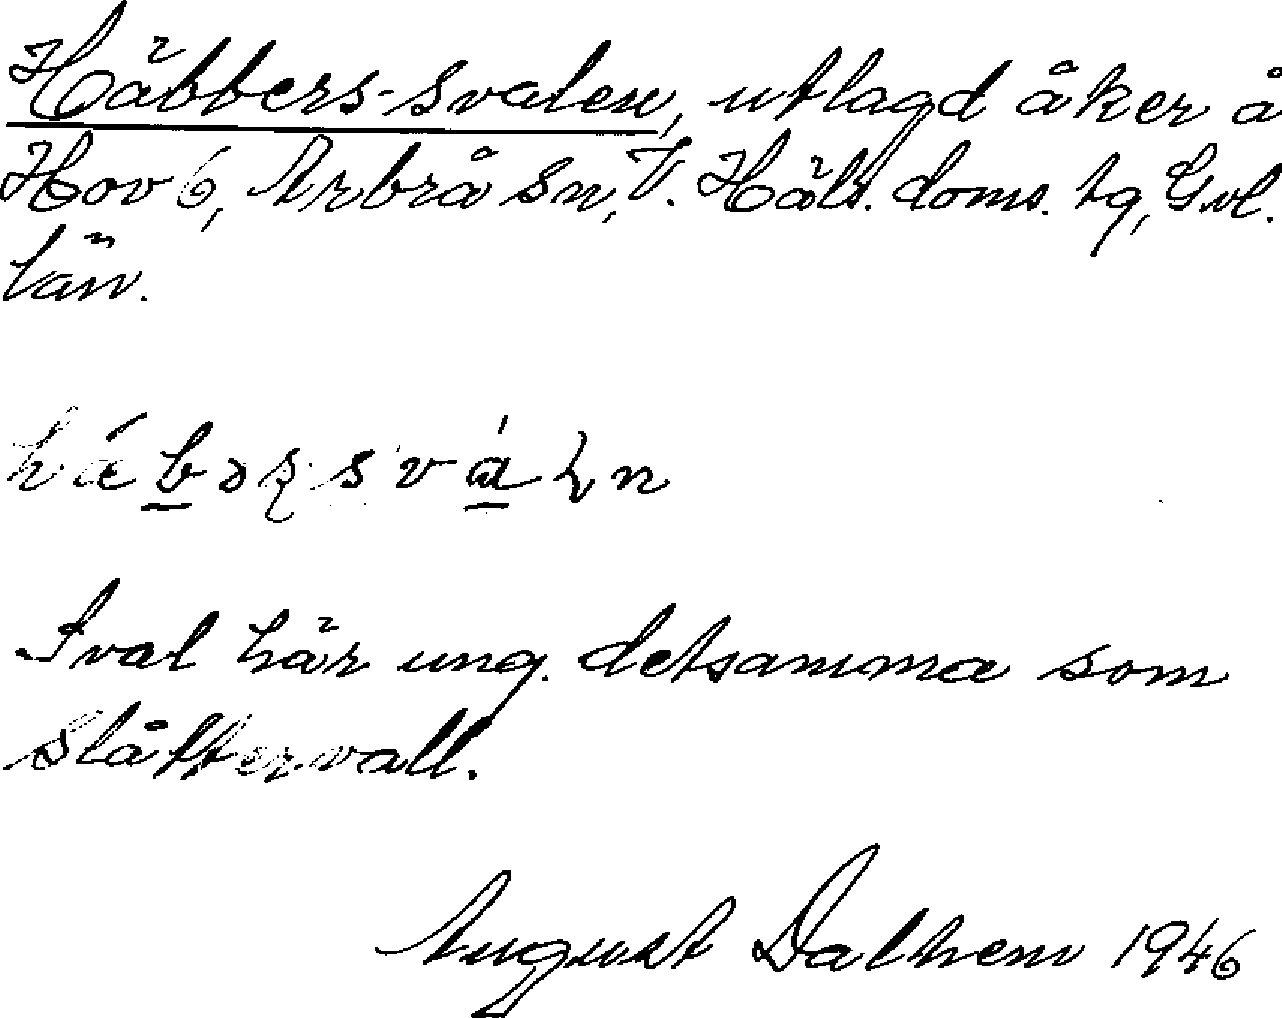 Häbbers-svalen, utlagd åker å
Hov 6, Arbrå sn, V. Häls. doms. tg, Gvl.
län.
Sval här ung. detsamma som
slåttervall.
August Dalhem 1946